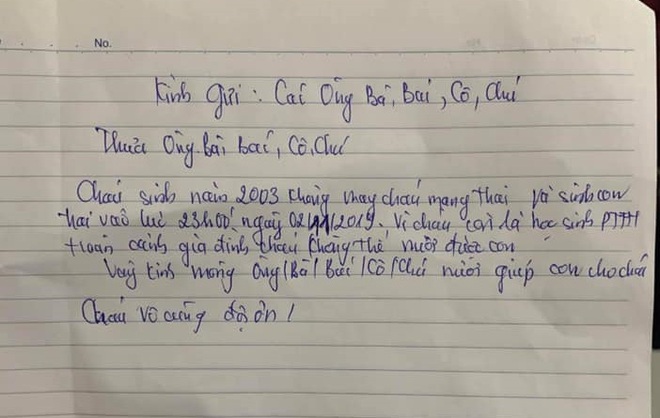 No.
Kính gửi: Các Ông Bà, Bác, Cô, Chú
Thưa Ông Bà Bác, Cô, Chú
Cháu sinh năm 2003 không may cháu mang thai và sinh con
vào lúc 23h00' ngày 02/11/2019. Vì cháu còn là học sinh PTTH
hoàn cảnh gia đình cháu không thể nuôi được con
Vậy kính mong Ông/Bà/Bác/Cô/Chú nuôi giúp con cho cháu
Cháu vô cùng đội ơn!